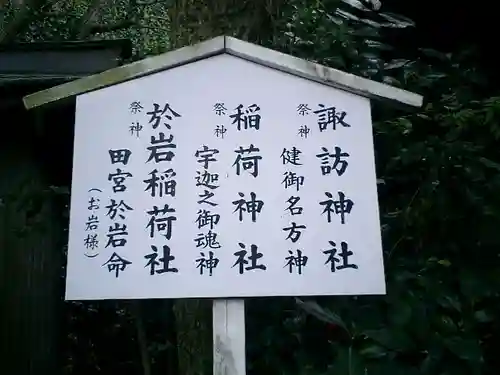 諏訪神社
祭神 健御名方神
稲荷神社
祭神 宇迦之御魂神
於岩稲荷社
祭神 田宮於岩命
（お岩様）